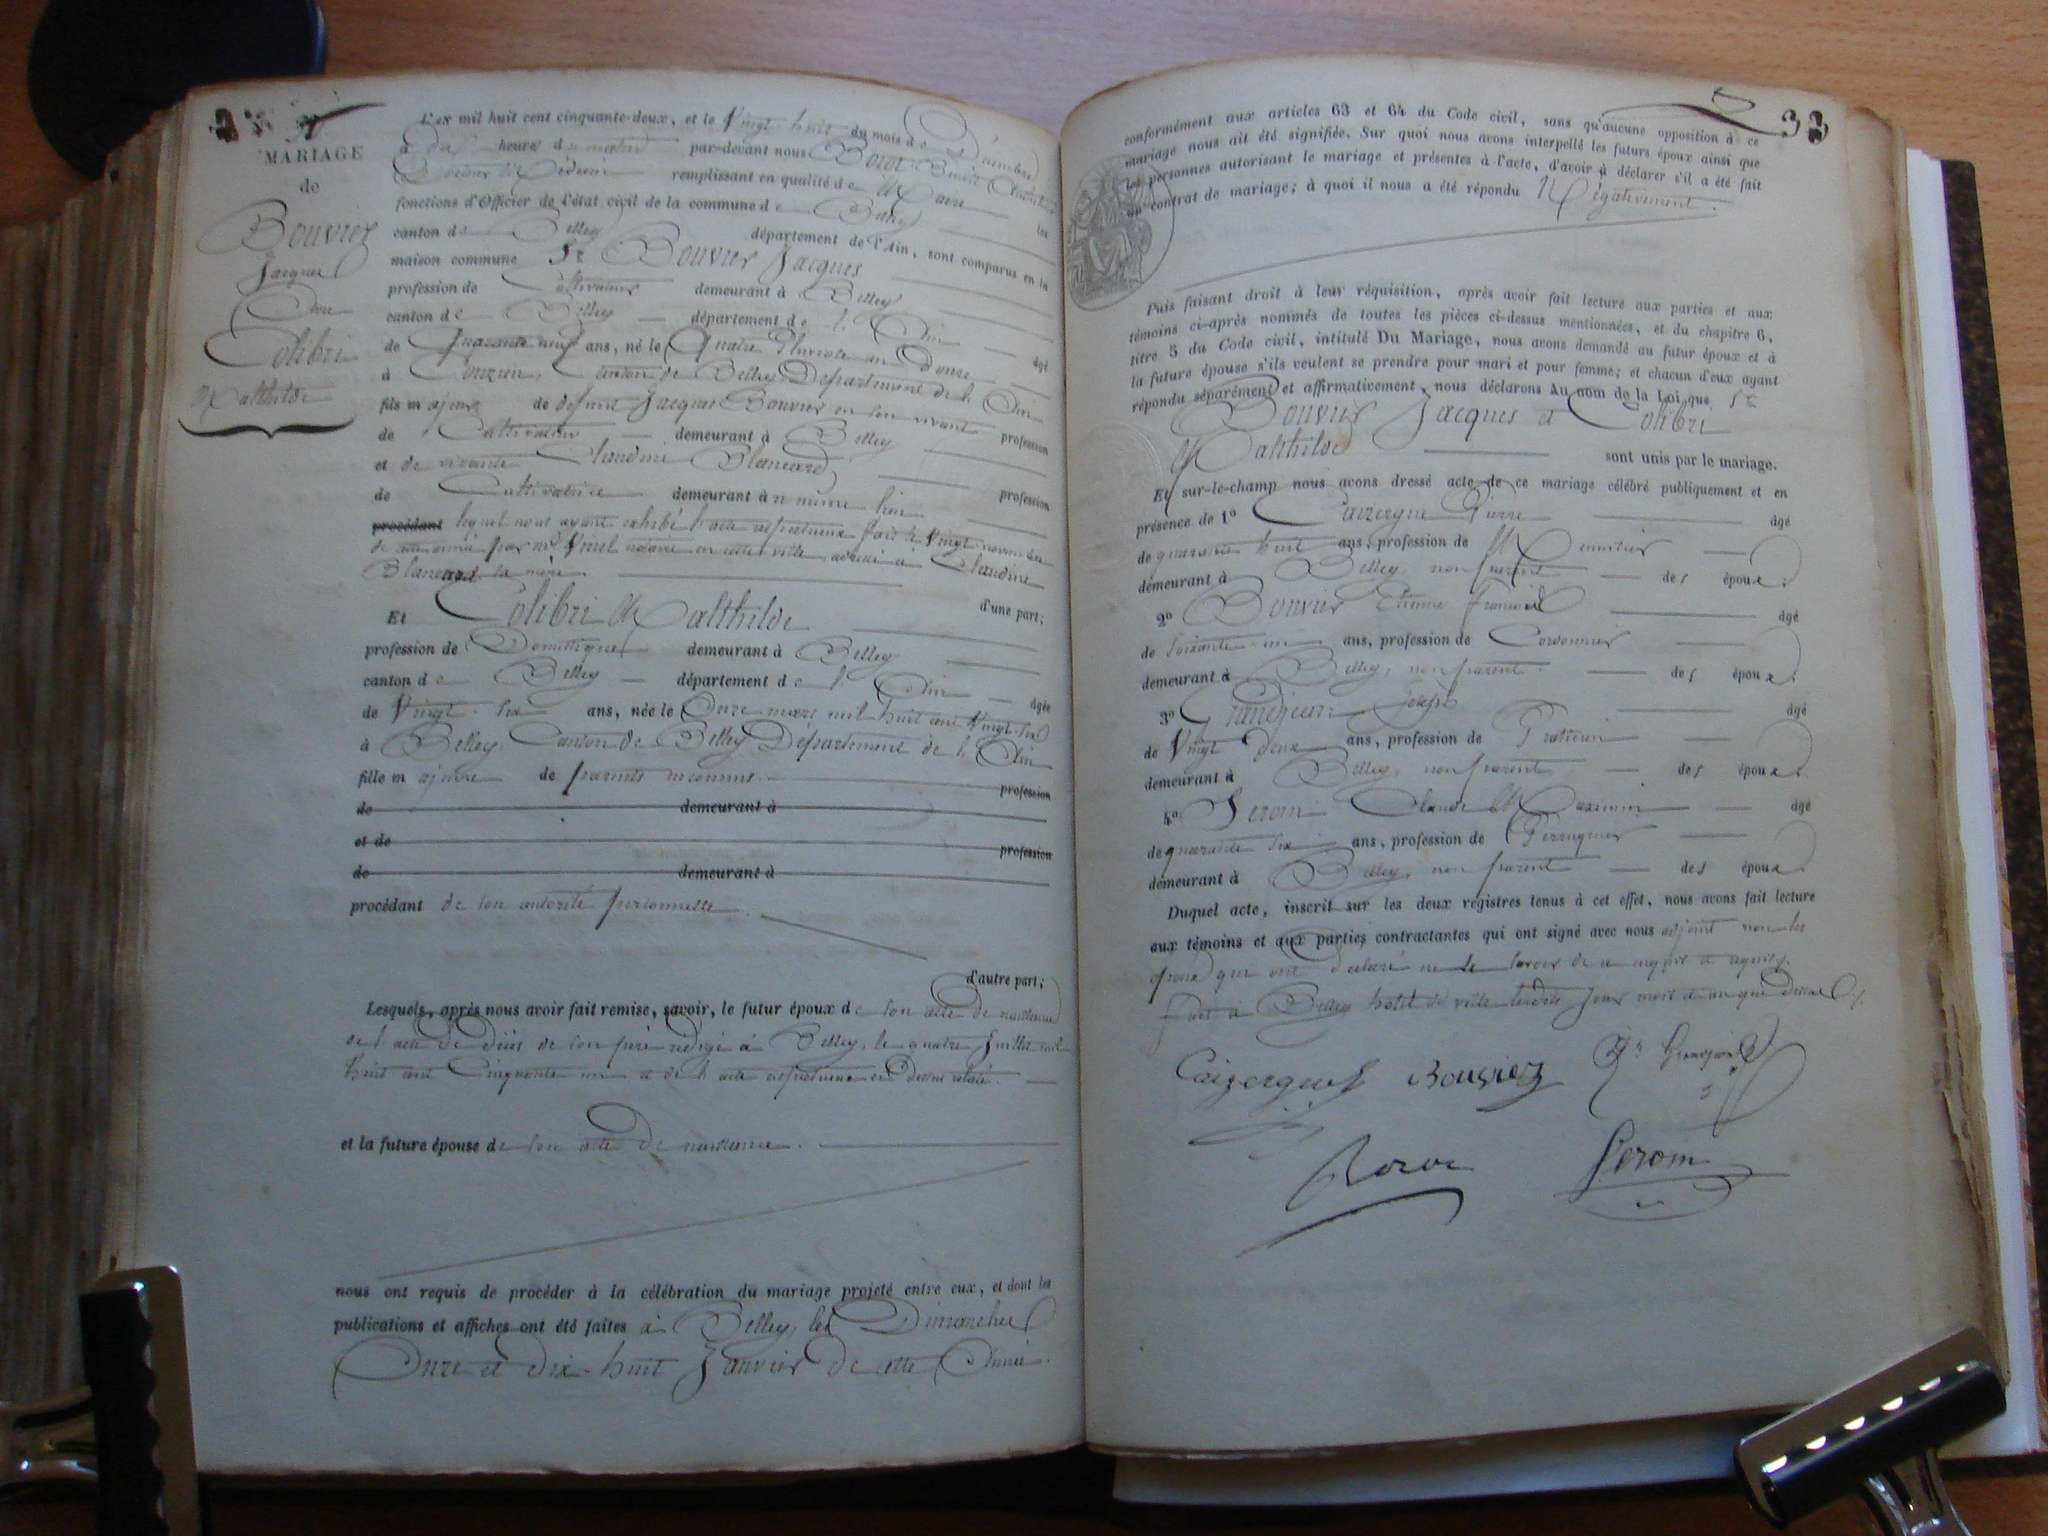 MARIAGE
de
Bouvier
Jacques
Avec
Colibri
Malthilde
L'an mil huit cent cinquante-deux, et le Vingt-huit du mois de Décembre
à dix heures du matin par-devant nous Borot
Docteur Médecin remplissant en qualité de Maire les
fonctions d'Officier de l'état civil de la commune de Belley
canton de Belley département de l'Ain, sont comparus en la
maison commune Sr Bouvier Jacques
profession de Cultivateur demeurant à Belley
canton de Belley département de l'Ain âgé
de Quarante neuf ans, né le Quatre Pluviose an Onze
à Canton de Belley Département de l'Ain
fils majeur de défunt Jacques Bouvier en son vivant profession
de Cultivateur demeurant à Belley
et de vivante Claudine Blancard profession
de Cultivatrice demeurant à même lieu
procédant lequel nous ayant exhibé l'acte respectueux fait le Vingt novembre
de cette année par Me notaire en cette ville, adressé à Claudine
Blancard sa mère.
d'une part;
Et Colibri Malthilde
profession de Domestique demeurant à Belley
canton de Belley département de l'Ain âgée
de Vingt-six ans, née le Onze mars mil huit cent vingt-six
à Belley Canton de Belley Département de l'Ain
fille majeure de parents inconnus profession
de demeurant à
et de profession
de demeurant à
procédant de son autorité personnelle.
d'autre part;
Lesquels, après nous avoir fait remise, savoir, le futur époux de son acte de naissance
de l'acte de décès de son père rédigé à Belley, le quatre Juillet mil
huit cent Cinquante un et de l'acte respectueux ci dessus relaté.
et la future épouse de son acte de naissance.
nous ont requis de procéder à la célébration du mariage projeté entre eux, et dont les
publications et affiches ont été faites à Belley, les Dimanches
Onze et dix-huit Janvier de cette Année.
33
conformément aux articles 63 et 64 du Code civil, sans qu'aucune opposition à ce
mariage nous ait été signifiée. Sur quoi nous avons interpellé les futurs époux ainsi que
les personnes autorisant le mariage et présentes à l'acte, d'avoir à déclarer s'il a été fait
un contrat de mariage; à quoi il nous a été répondu Négativement.
Puis faisant droit à leur réquisition, après avoir fait lecture aux parties et aux
témoins ci-après nommés de toutes les pièces ci-dessus mentionnées, et du chapitre 6,
titre 5 du Code civil, intitulé Du Mariage, nous avons demandé au futur époux et à
la future épouse s'ils veulent se prendre pour mari et pour femme; et chacun d'eux ayant
répondu séparément et affirmativement, nous déclarons Au nom de la Loi que Sr
Bouvier Jacques et Colibri
Malthilde sont unis par le mariage.
Et sur-le-champ nous avons dressé acte de ce mariage célébré publiquement et en
présence de 1o Caizergue Pierre âgé
de quarante huit ans, profession de Menuisier
demeurant à Belley, non parent des époux.
2o Bouvier Etienne François âgé
de soixante-un ans, profession de Cordonnier
demeurant à Belley, non parent des époux.
3o Grandjean Joseph âgé
de Vingt deux ans, profession de Praticien
demeurant à Belley, non parent des époux.
4o Serom Claude Maximin âgé
de quarante six ans, profession de Perruquier
demeurant à Belley, non parent des époux.
Duquel acte, inscrit sur les deux registres tenus à cet effet, nous avons fait lecture
aux témoins et aux parties contractantes qui ont signé avec nous non les
époux qui ont déclaré ne le savoir de ce enquis et requis.
fait à Belley hotel de ville lesdits jour mois et an que dessus
Caizergues Bouvier Jh Grandjean
Borot Serom